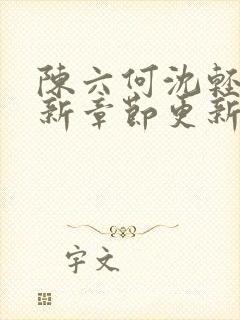 陳六何沈輕
新章節更新
字文